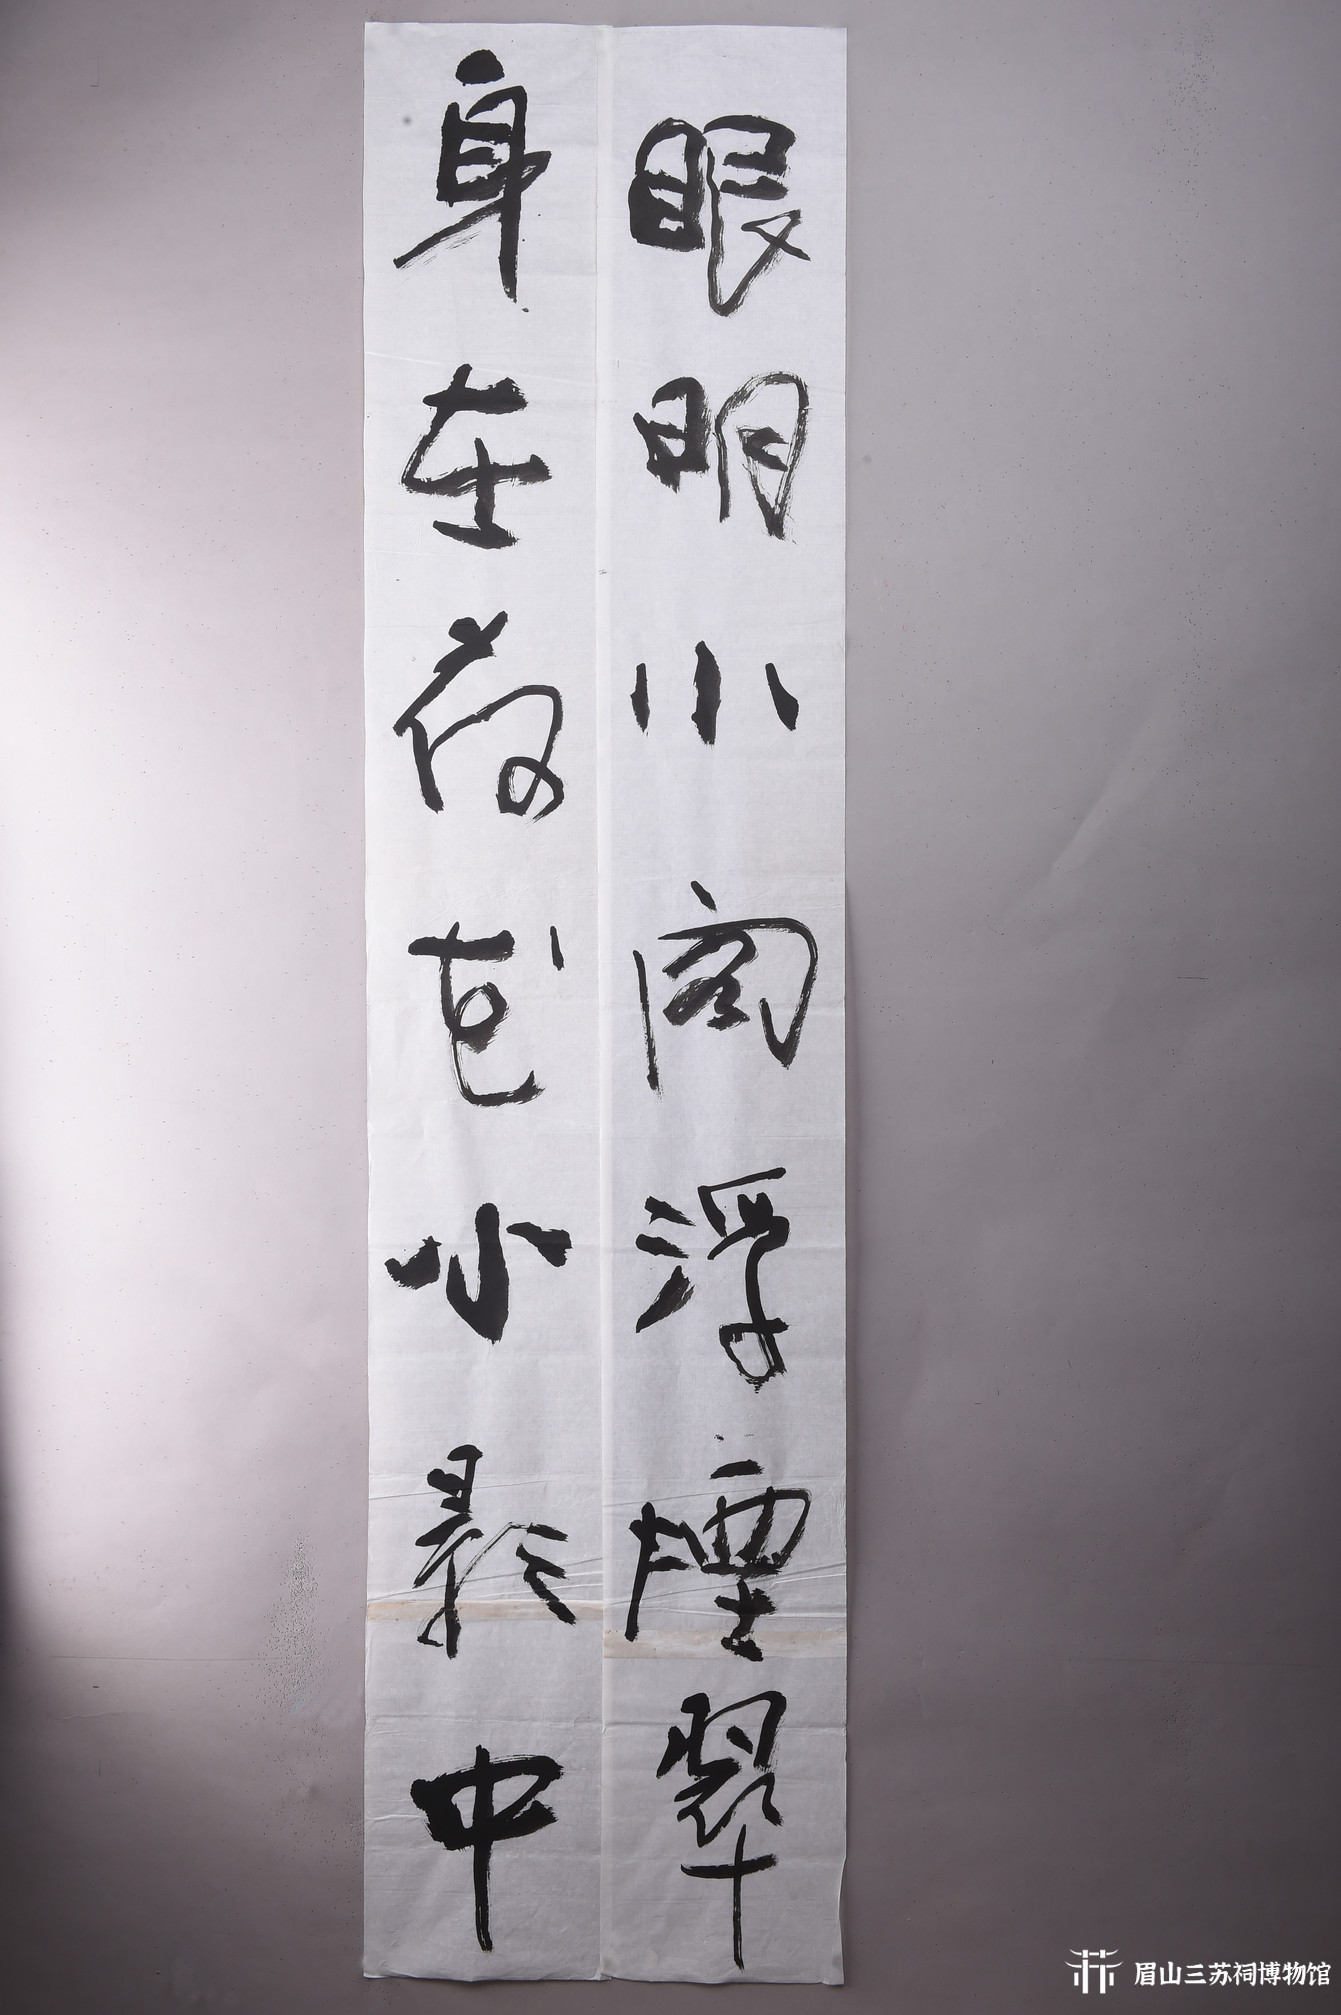 眼明小阁浮烟翠
身在荷花水影中
眉山三苏祠博物馆